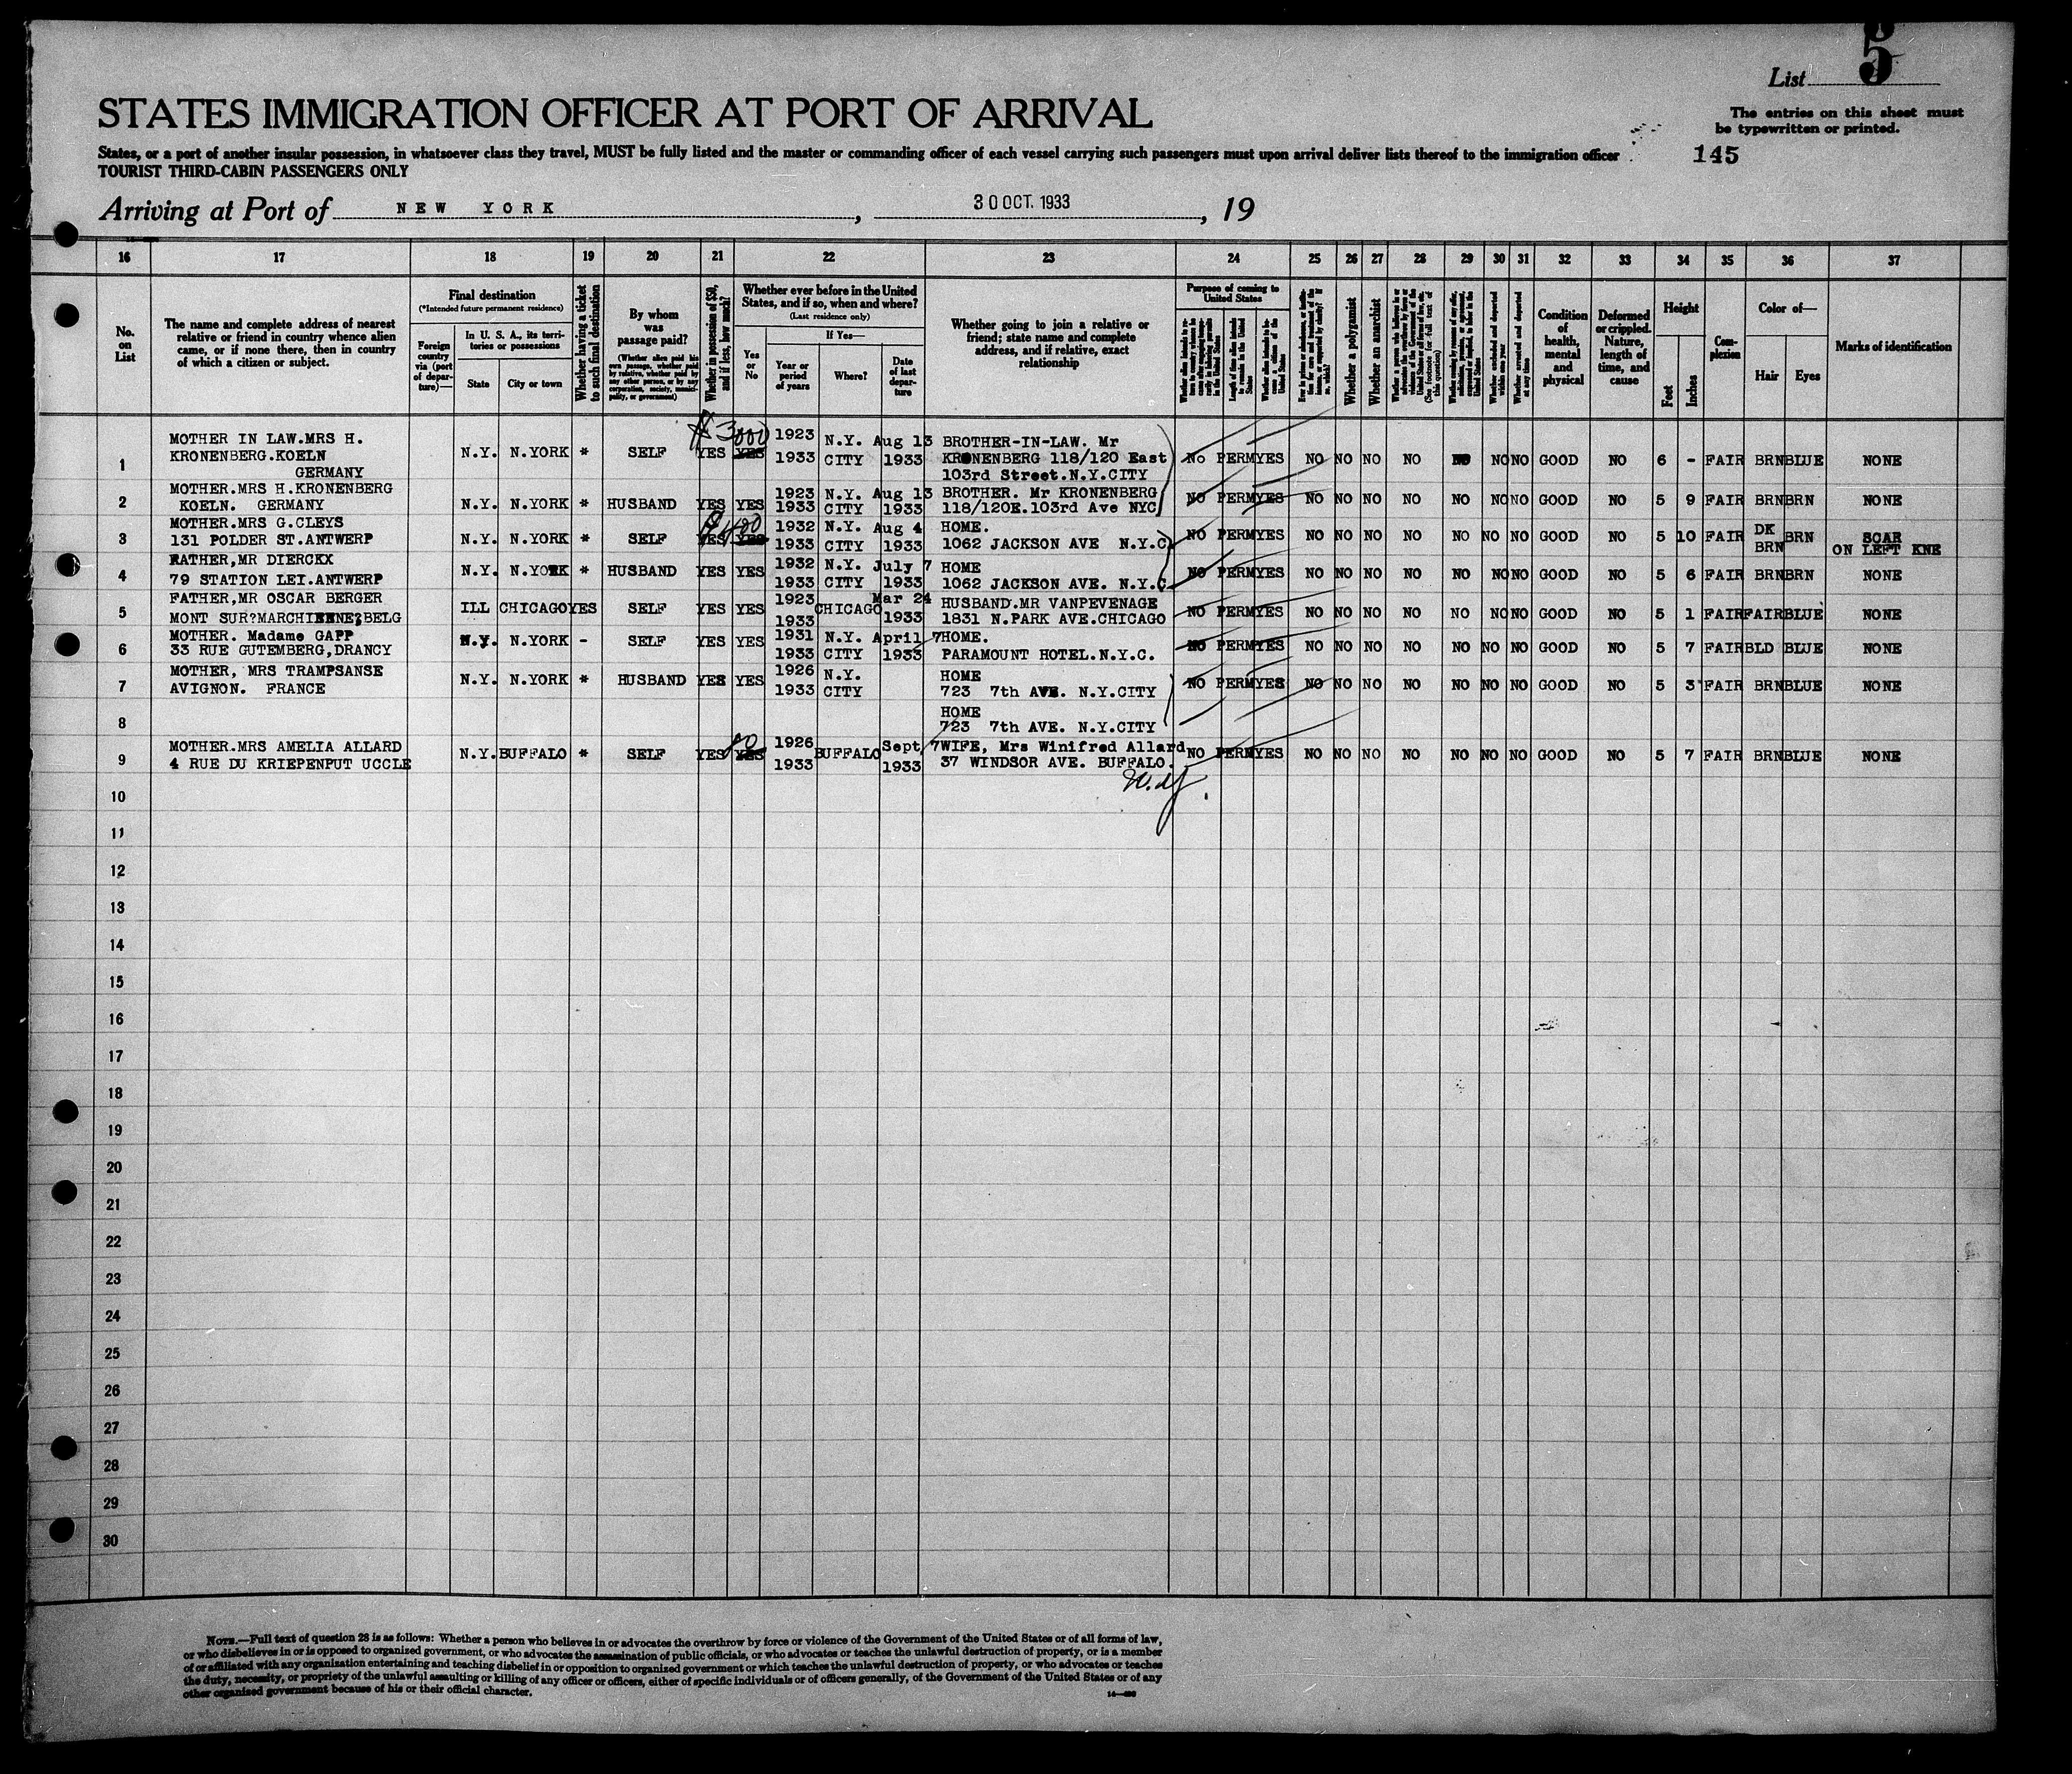 List 5
STATES IMMIGRATION OFFICER AT PORT OF ARRIVAL
The entries on this sheet must
be typewritten or printed.
States, or a port of another insular possession, in whatsoever class they travel, MUST be fully listed and the master or commanding officer of each vessel carrying such passengers must upon arrival deliver lists thereof to the immigration officer
145
TOURIST THIRD-CABIN PASSENGERS ONLY
Arriving at Port of NEW YORK, 30 OCT. 1933, 19
16 17 18 19 20 21 22 23 24 25 26 27 28 29 30 31 32 33 34 35 36 37
No. on List
The name and complete address of nearest relative or friend in country whence alien came, or if none there, then in country of which a citizen or subject.
Final destination
(*Intended future permanent residence)
Foreign country via (port of departure)—
In U. S. A., its territories or possessions
State
City or town
Whether having a ticket to such final destination
By whom was passage paid?
(Whether alien paid his own passage, whether paid by relative, whether paid by any other person, or by any corporation, society, municipality, or government)
Whether in possession of $50, and if less, how much?
Whether ever before in the United States, and if so, when and where?
(Last residence only)
Yes or No
If Yes—
Year or period of years
Where?
Date of last departure
Whether going to join a relative or friend; state name and complete address, and if relative, exact relationship
Purpose of coming to United States
Length of time alien intends to remain in the United States
Whether alien intends to become a citizen of the United States
Whether a polygamist
Whether an anarchist
(See footnote for full text of this question)
Whether arrested and deported at any time
Condition of health, mental and physical
Deformed or crippled. Nature, length of time, and cause
Height
Feet
Inches
Complexion
Color of—
Hair
Eyes
Marks of identification
1 MOTHER IN LAW.MRS H. KRONENBERG.KOELN GERMANY N.Y. N.YORK * SELF YES $3000 YES 1923 1933 N.Y. CITY Aug 13 1933 BROTHER-IN-LAW. Mr KRONENBERG 118/120 East 103rd Street.N.Y.CITY No PERM YES NO NO NO NO NO NO NO GOOD NO 6 - FAIR BRN BLUE NONE
2 MOTHER.MRS H.KRONENBERG KOELN. GERMANY N.Y. N.YORK * HUSBAND YES YES 1923 1933 N.Y. CITY Aug 13 1933 BROTHER. Mr KRONENBERG 118/120E.103rd Ave NYC NO PERM YES NO NO NO NO NO NO NO GOOD NO 5 9 FAIR BRN BRN NONE
3 MOTHER.MRS G.CLEYS 131 POLDER ST.ANTWERP N.Y. N.YORK * SELF YES YES 1932 1933 N.Y. CITY Aug 4 1933 HOME. 1062 JACKSON AVE N.Y.C. NO PERM YES NO NO NO NO NO NO NO GOOD NO 5 10 FAIR DK BRN BRN SCAR ON LEFT KNE
4 RATHER,MR DIERCKX 79 STATION LEI.ANTWERP N.Y. N.YORK * HUSBAND YES YES 1932 1933 N.Y. CITY July 7 1933 HOME 1062 JACKSON AVE. N.Y.C. NO PERM YES NO NO NO NO NO NO NO GOOD NO 5 6 FAIR BRN BRN NONE
5 FATHER,MR OSCAR BERGER MONT SUR?MARCHIENNE?BELG ILL CHICAGO YES SELF YES YES 1923 1933 CHICAGO Mar 24 1933 HUSBAND.MR VANPEVENAGE 1831 N.PARK AVE.CHICAGO NO PERM YES NO NO NO NO NO NO NO GOOD NO 5 1 FAIR FAIR BLUE NONE
6 MOTHER. Madame GAPP 33 RUE GUTEMBERG,DRANCY N.Y. N.YORK - SELF YES YES 1931 1933 N.Y. CITY April 7 1933 HOME. PARAMOUNT HOTEL.N.Y.C. NO PERM YES NO NO NO NO NO NO NO GOOD NO 5 7 FAIR BLD BLUE NONE
7 MOTHER, MRS TRAMPSANSE AVIGNON. FRANCE N.Y. N.YORK * HUSBAND YES YES 1926 1933 N.Y. CITY HOME 723 7th AVE. N.Y.CITY NO PERM YES NO NO NO NO NO NO NO GOOD NO 5 3 FAIR BRN BLUE NONE
8 HOME 723 7th AVE. N.Y.CITY
9 MOTHER.MRS AMELIA ALLARD 4 RUE DU KRIEPENPUT UCCLE N.Y. BUFFALO * SELF YES YES 1926 1933 BUFFALO Sept 7 1933 WIFE, Mrs Winifred Allard 37 WINDSOR AVE. BUFFALO. NO PERM YES NO NO NO NO NO NO NO GOOD NO 5 7 FAIR BRN BLUE NONE
10
11
12
13
14
15
16
17
18
19
20
21
22
23
24
25
26
27
28
29
30
NOTE.—Full text of question 28 is as follows: Whether a person who believes in or advocates the overthrow by force or violence of the Government of the United States or of all forms of law,
or who disbelieves in or is opposed to organized government, or who advocates the assassination of public officials, or who advocates or teaches the unlawful destruction of property, or is a member
of or affiliated with any organization entertaining and teaching disbelief in or opposition to organized government or which teaches the unlawful destruction of property, or who advocates or teaches
the duty, necessity, or propriety of the unlawful assaulting or killing of any officer or officers, either of specific individuals or of officers generally, of the Government of the United States or of any
other organized government because of his or their official character.